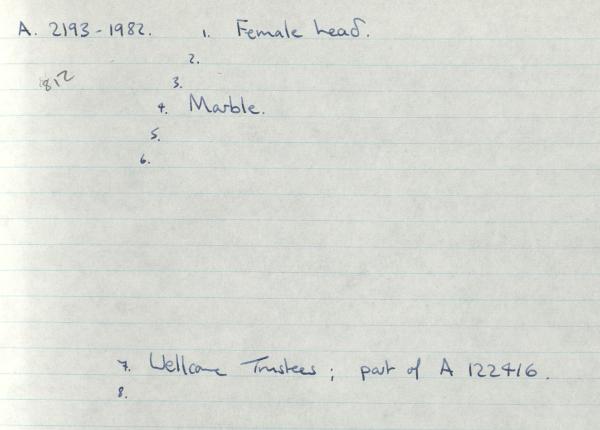 A. 2193-1982. 1. Female head.
2.
812
3.
4. Marble.
5.
6.
7. Wellcome Trustees; part of A 122416.
8.